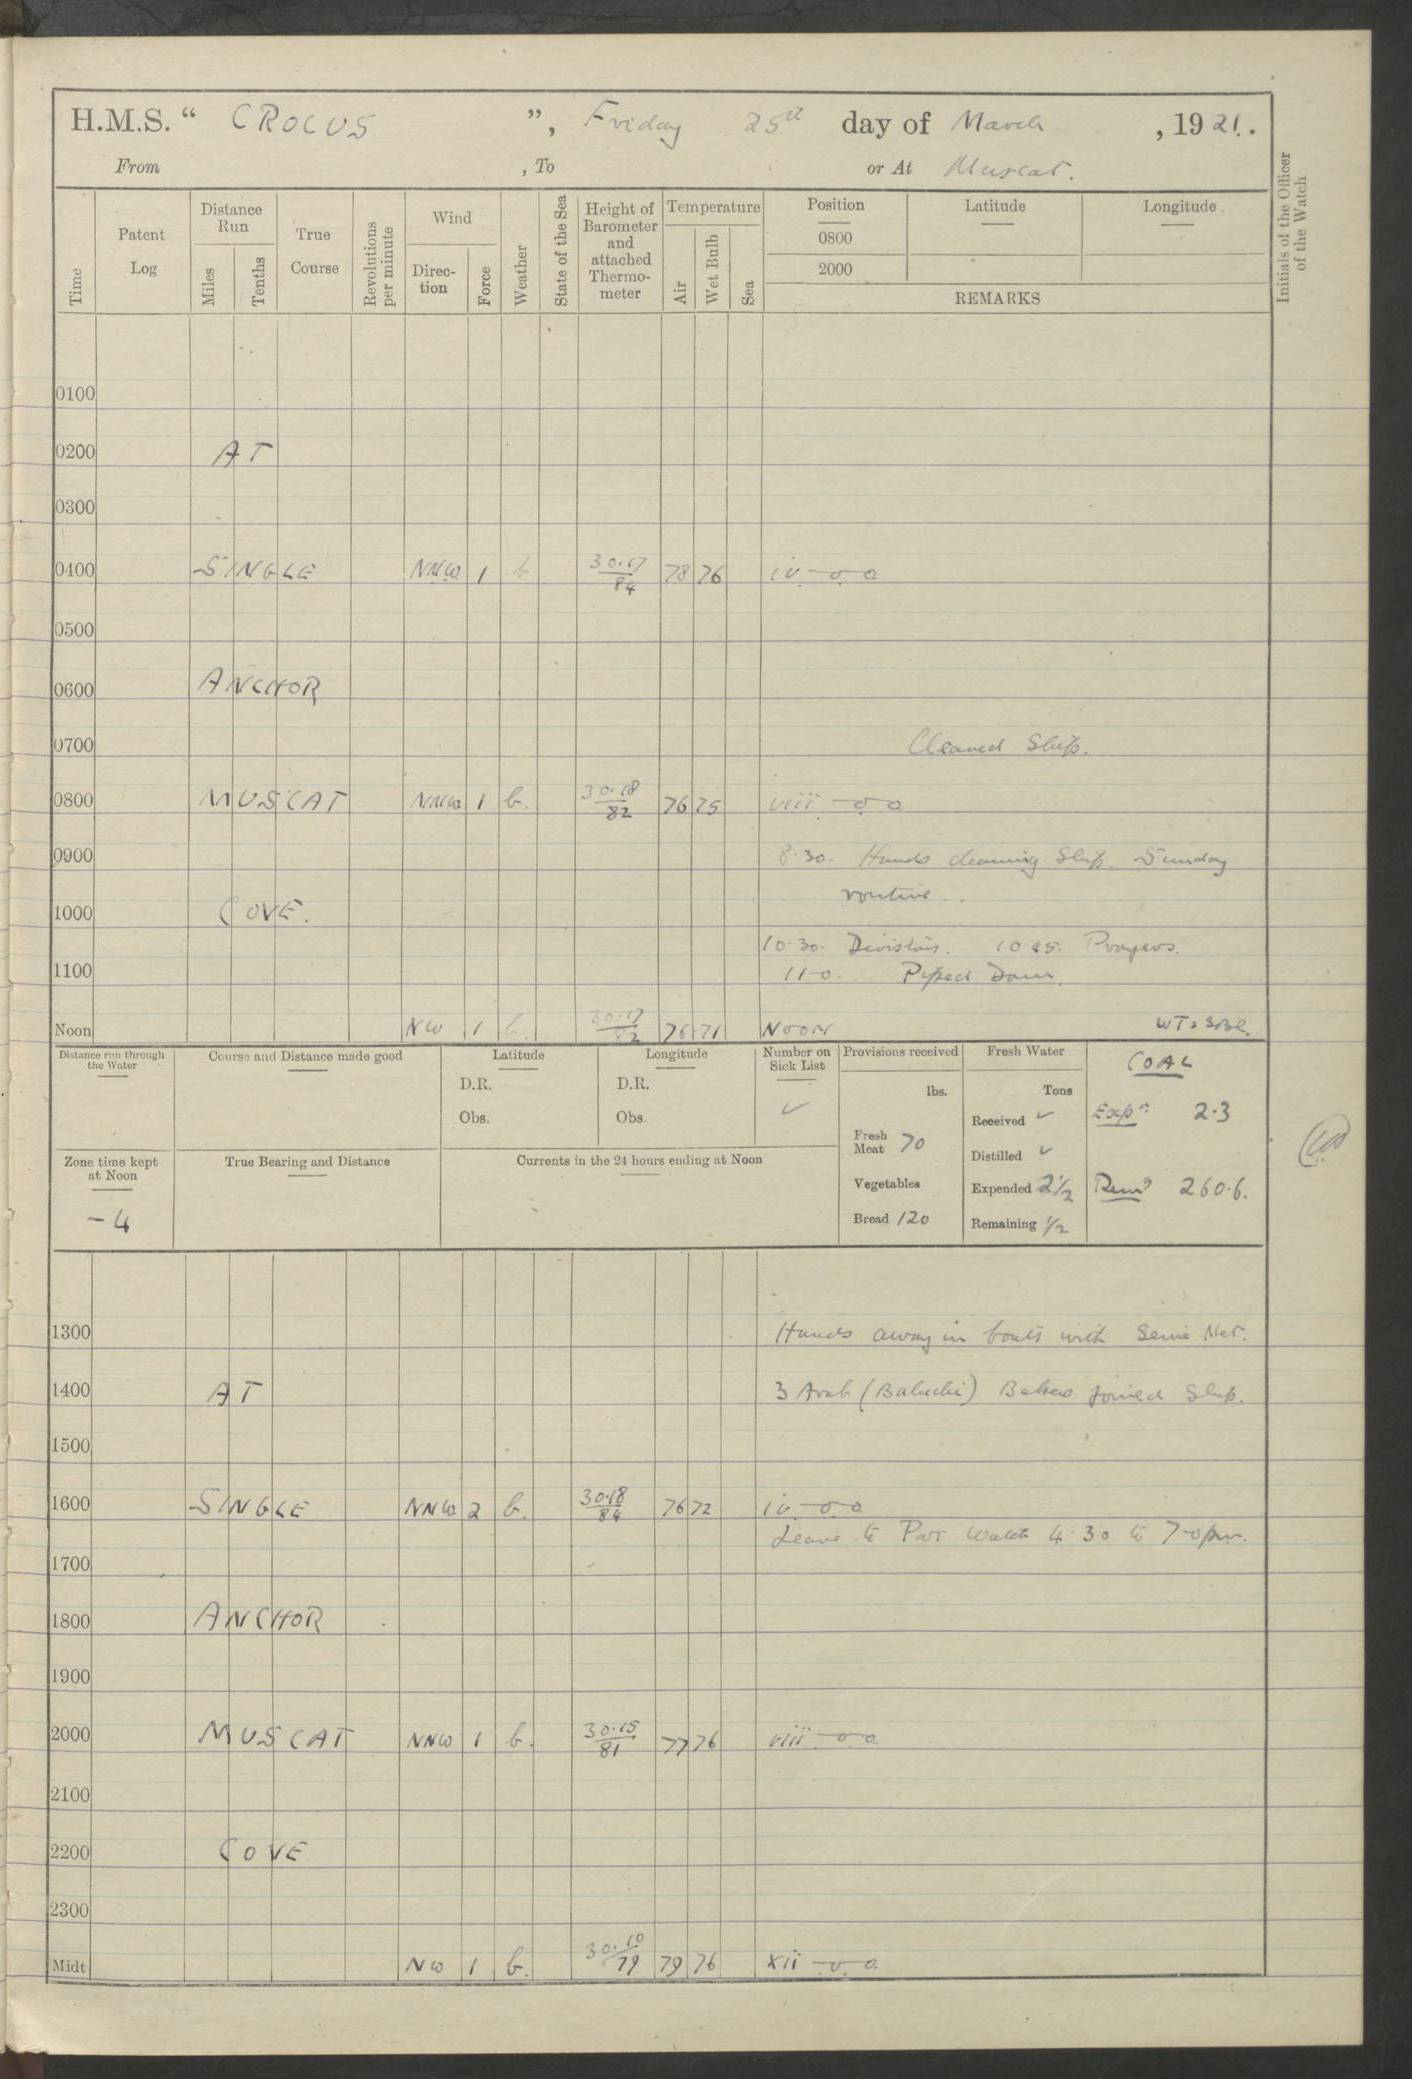 H.M.S. “ CROCUS ”, Friday 25th day of March , 1921.
From , To or At Muscat.
Time
Patent Log
Distance Run
Miles
Tenths
True Course
Revolutions per minute
Wind
Direc-tion
Force
Weather
State of the Sea
Height of Barometer and attached Thermo-meter
Temperature
Air
Wet Bulb
Sea
Position
0800
2000
Latitude
Longitude
REMARKS
Initials of the Officer of the Watch
0100
0200 AT
0300
0400 SINGLE NNW 1 b 30.17/84 78 76 iv - o. o
0500
0600 ANCHOR
0700 Cleaned Ship.
0800 MUSCAT NNW 1 b. 30.18/82 76 75 viii - o o
0900 8.30. Hands cleaning Ship. Sunday
routine.
1000 COVE.
10.30. Divisions. 10.45. Prayers.
1100 11-0. Piped Down.
Noon NW 1 b. 30.17/82 76 71 NOON
Distance run through the Water
Course and Distance made good
Latitude
D.R.
Obs.
Longitude
D.R.
Obs.
Number on Sick List
✓
Provisions received
lbs.
Fresh Meat 70
Vegetables
Bread 120
Fresh Water
Tons
Received ✓
Distilled ✓
Expended 2½
Remaining ½
COAL
Expn 2.3
Remg 260.6.
Zone time kept at Noon
-4
True Bearing and Distance
Currents in the 24 hours ending at Noon
1300 Hands away in boats with Seine Net.
1400 AT 3 Arab (Baluchi) joined Ship.
1500
1600 SINGLE NNW 2 b. 30.18/84 76 72 iv - o o
Leave to Port Watch 4.30 to 7-0 pm.
1700
1800 ANCHOR
1900
2000 MUSCAT NNW 1 b. 30.15/81 77 76 viii - o o
2100
2200 COVE
2300
Midt NW 1 b. 30.10/79 79 76 xii - o. o.